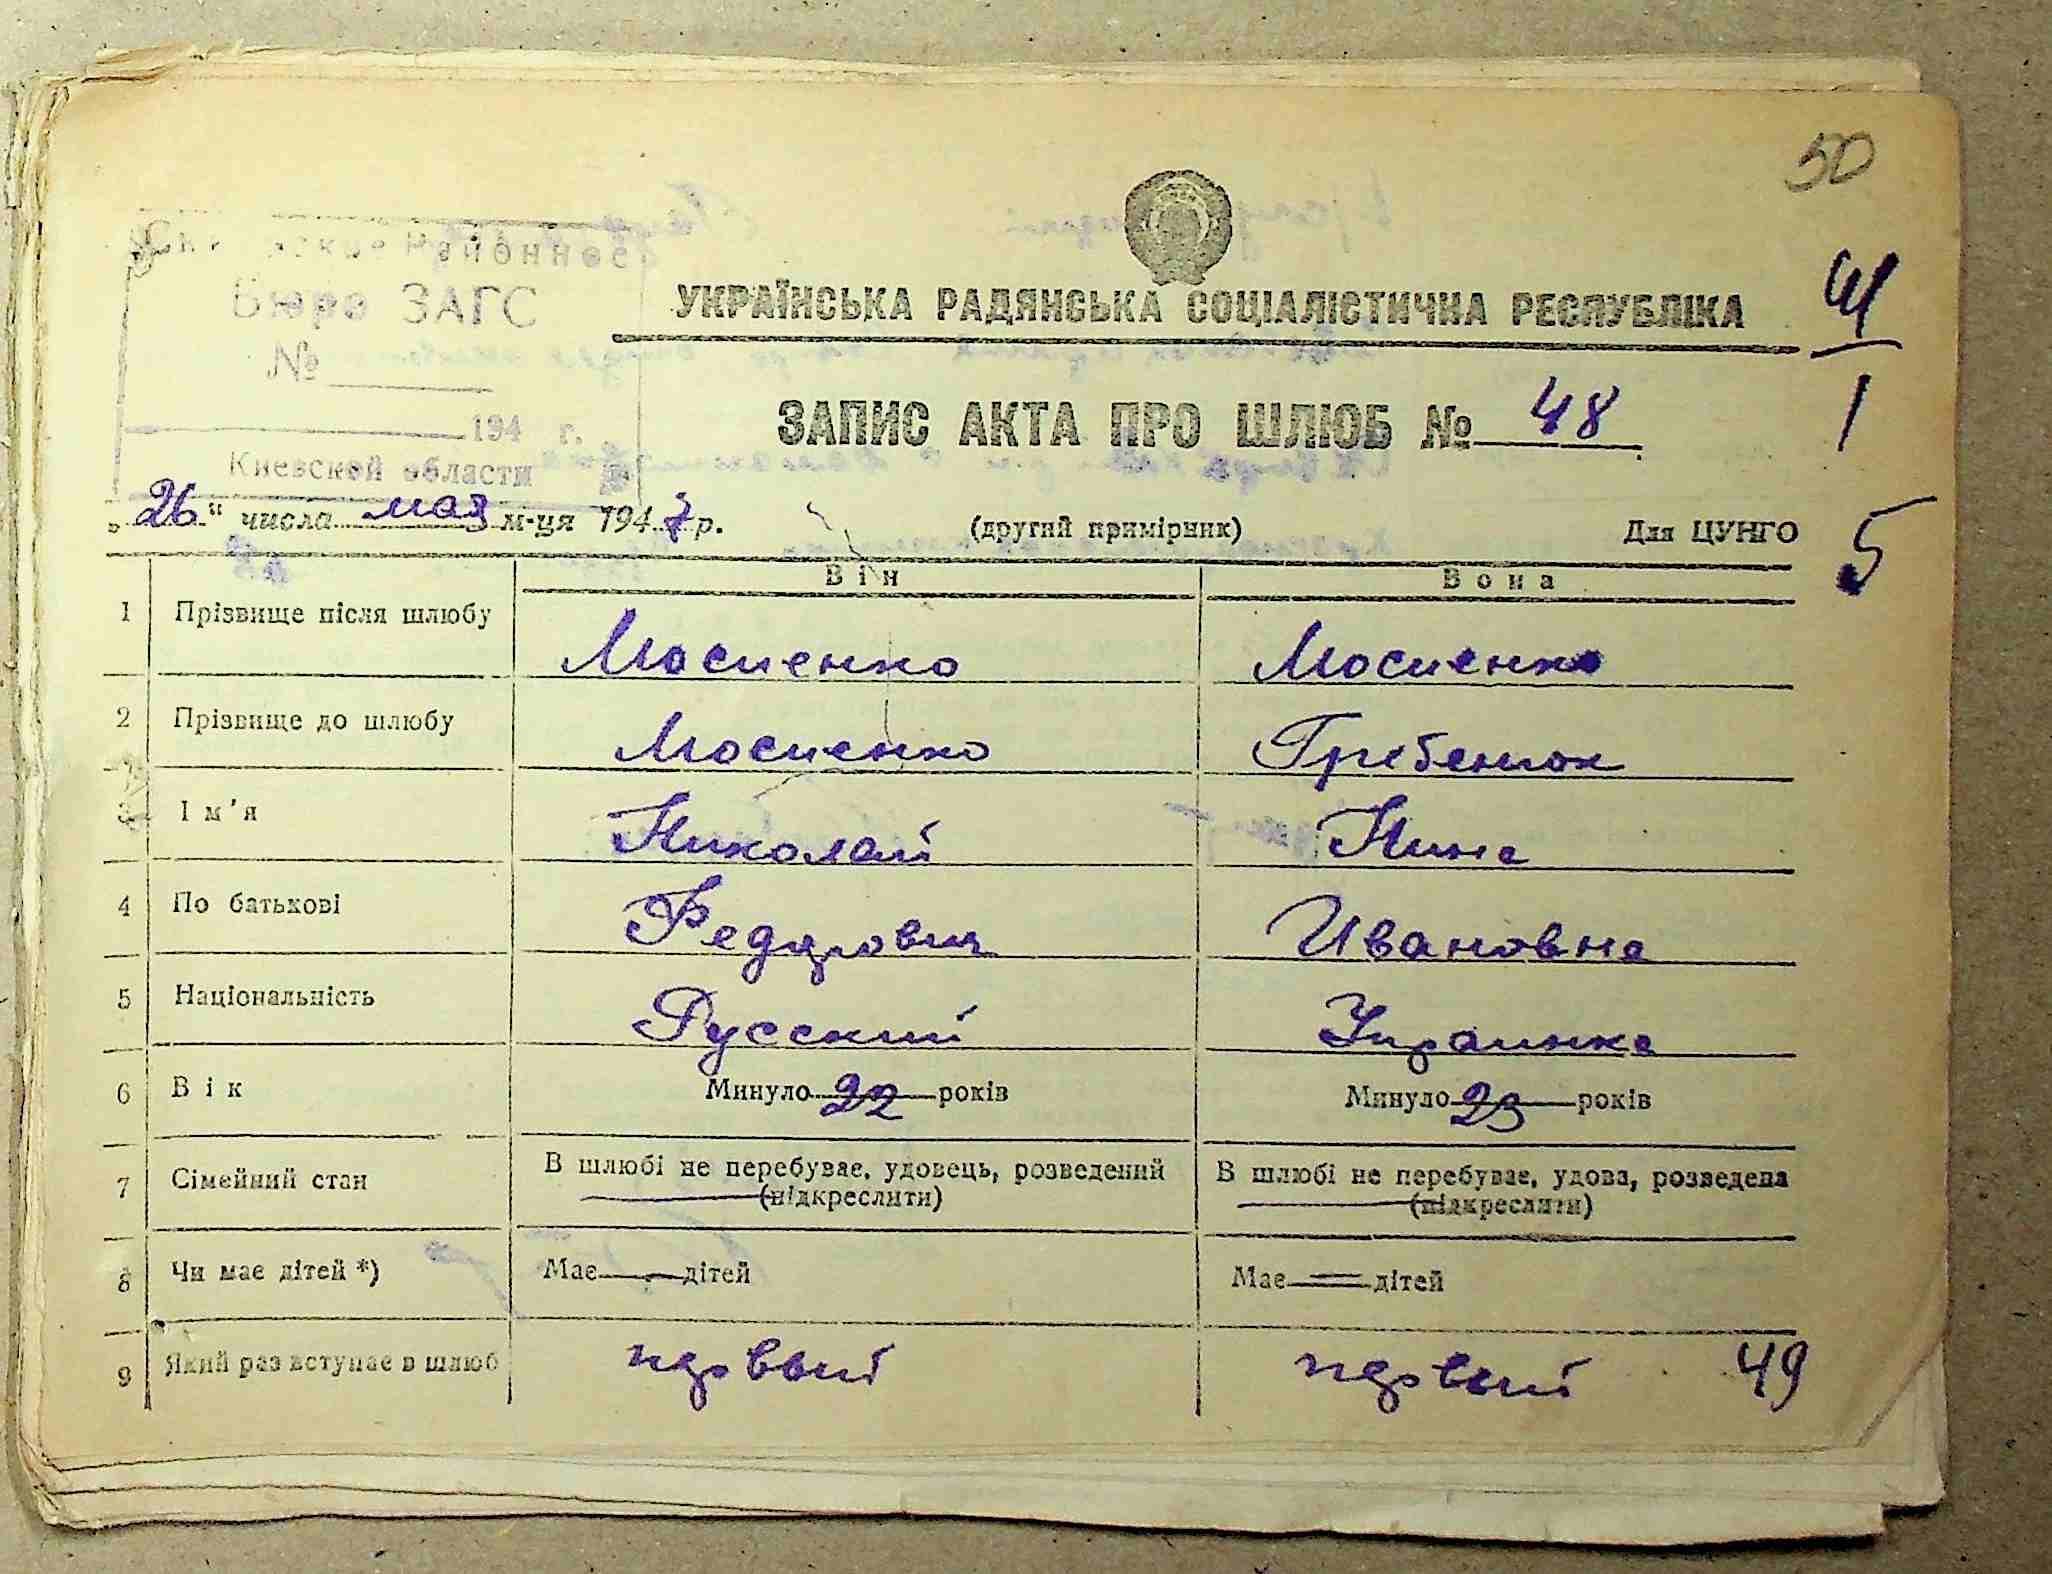 50
Районное
Бюро ЗАГС
№
194 г.
Киевской области
УКРАЇНСЬКА РАДЯНСЬКА СОЦІАЛІСТИЧНА РЕСПУБЛІКА
ЗАПИС АКТА ПРО ШЛЮБ № 48
Ш
1
5
„26“ числа мая м-ця 1947 р. (другий примірник) Для ЦУНГО
Він Вона
1 Прізвище після шлюбу Мосиенко Мосиенко
2 Прізвище до шлюбу Мосиенко Гребенюк
3 Ім'я Николай Нина
4 По батькові Федорович Ивановна
5 Національність Русский Украинка
6 Вік Минуло 22 років Минуло 23 років
7 Сімейний стан В шлюбі не перебуває, удовець, розведений В шлюбі не перебуває, удова, розведена
(підкреслити) (підкреслити)
8 Чи має дітей *) Має — дітей Має — дітей
9 Який раз вступає в шлюб первый первый 49